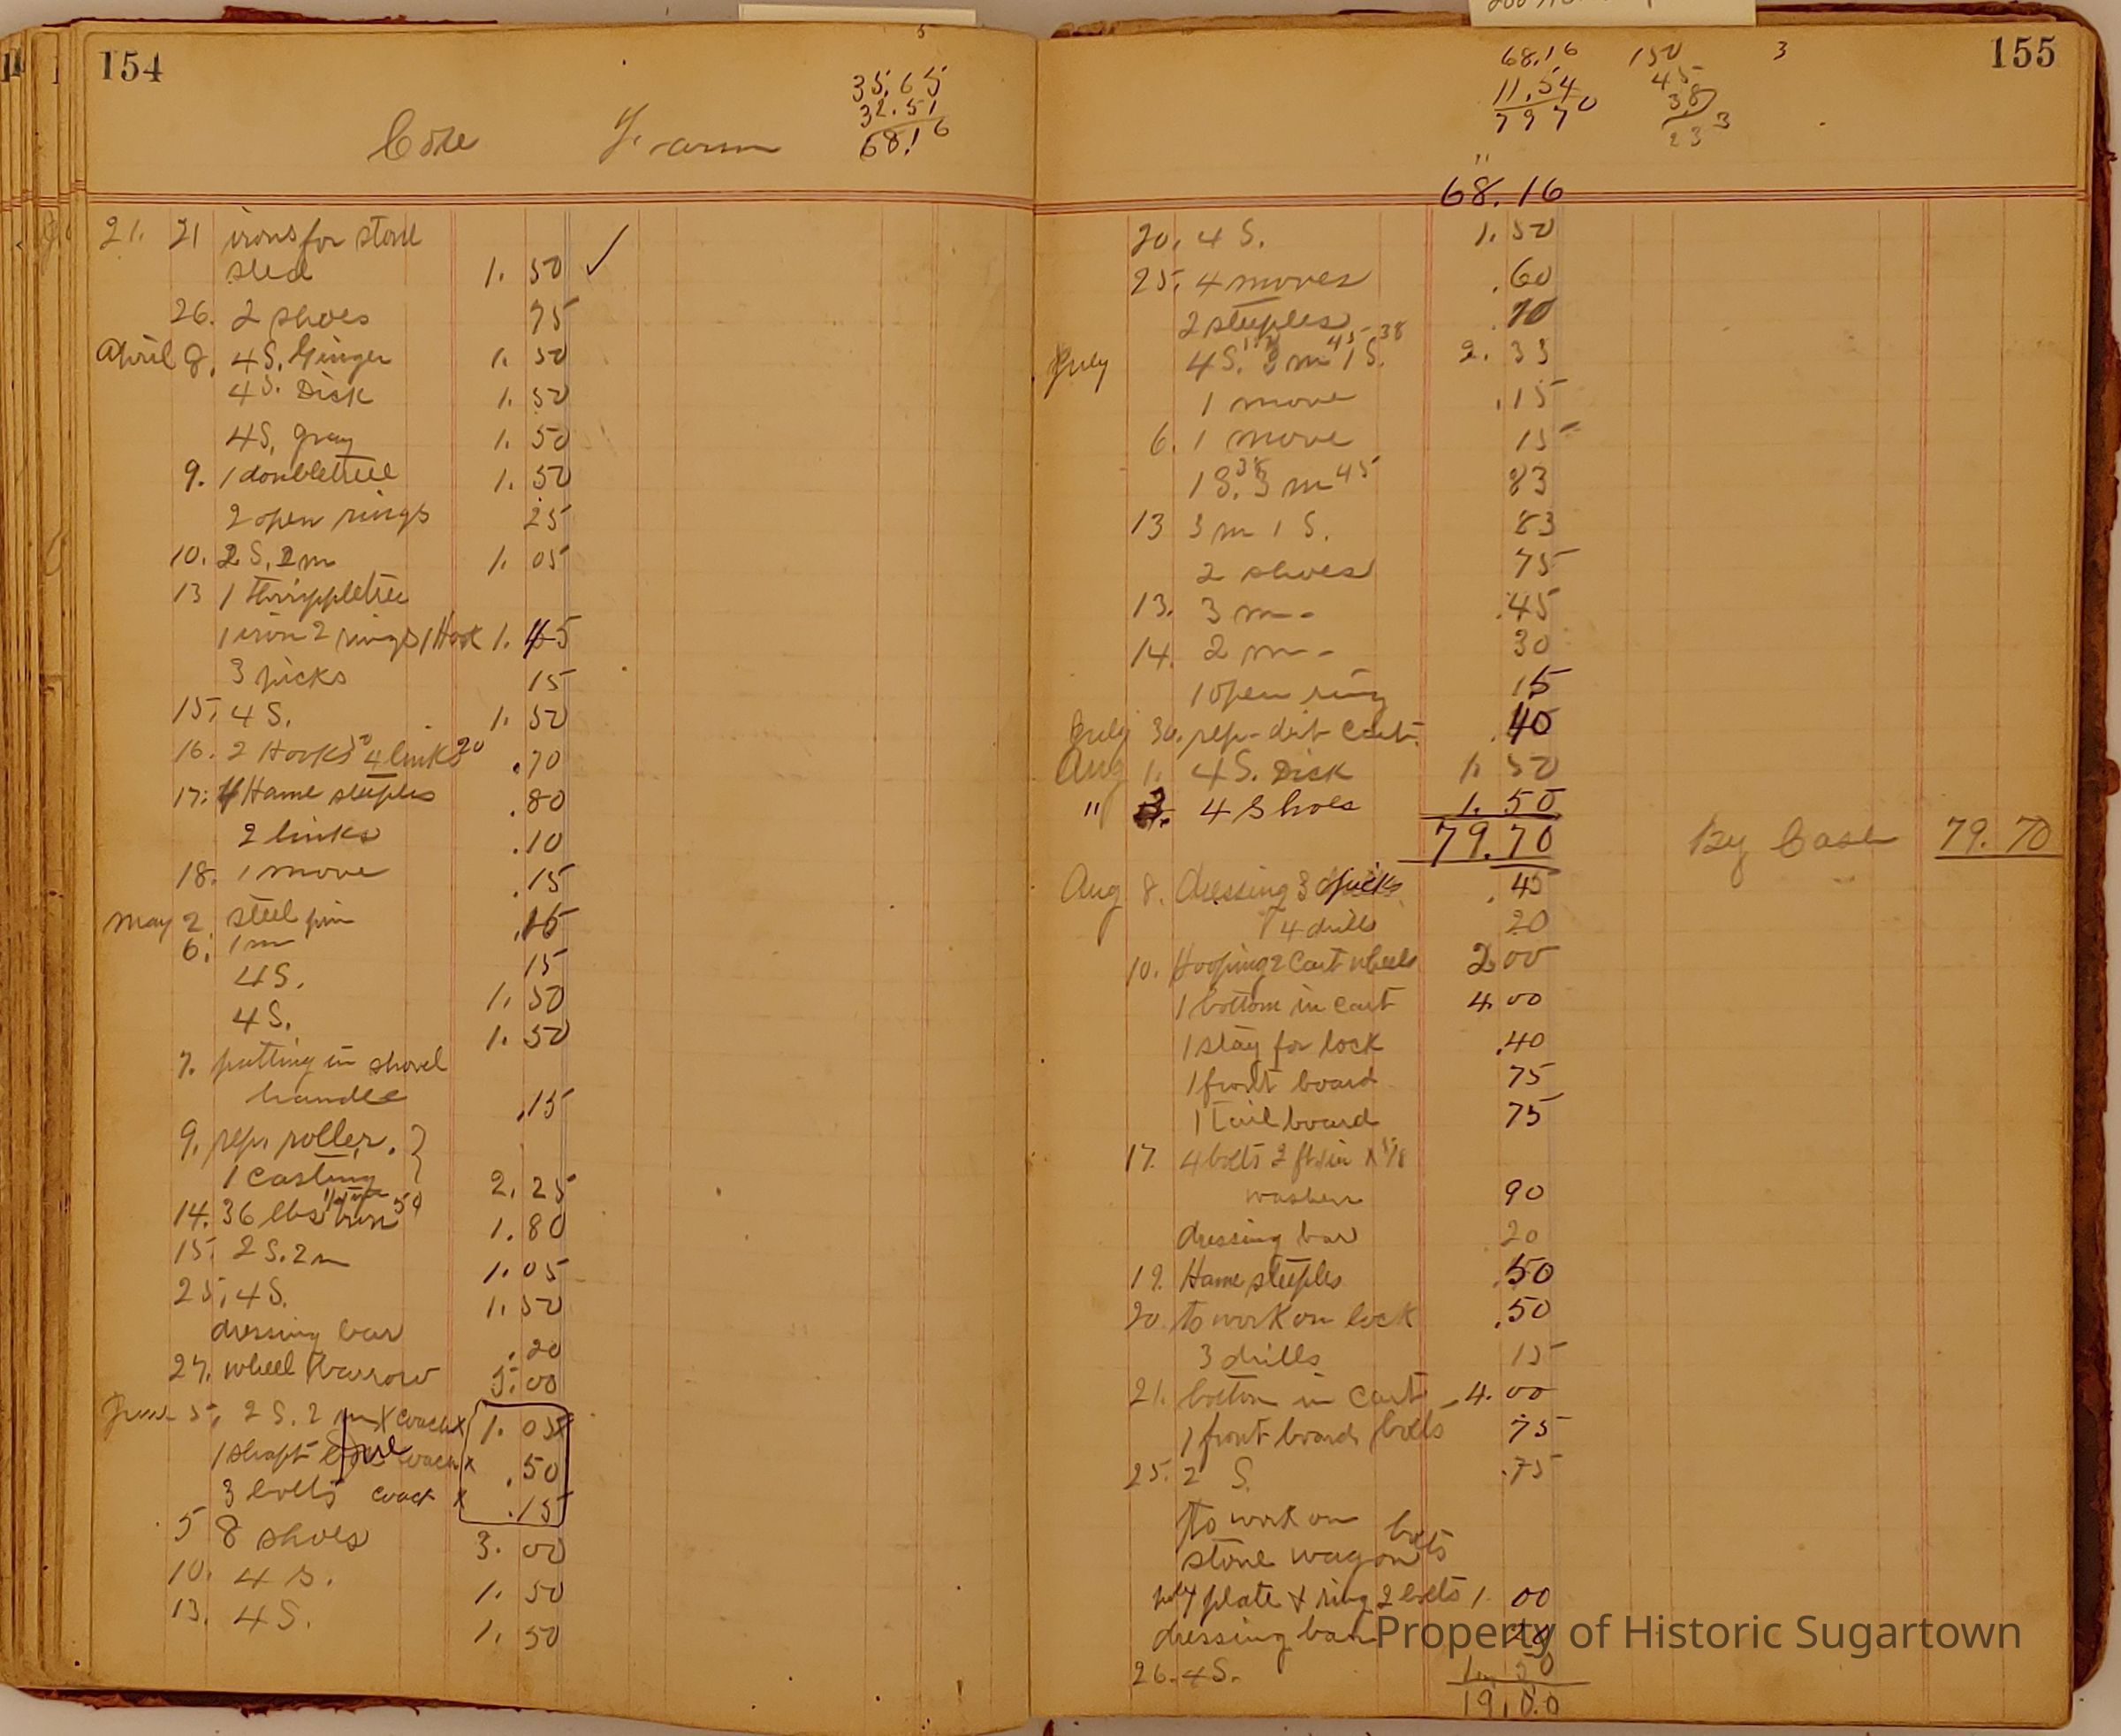 154
35.65
32.51
68.16
Cose Farm
21. 21 irons for stone
sled 1.50 ✓
26. 2 shoes 75
April 8. 4 S. Ginger 1.50
4 S. Dick 1.50
4 S. gray 1.50
9. 1 doubletree 1.50
2 open rings 25
10. 2 S. 2 m 1.05
13 1 thrippletree
1 iron 2 rings 1 Hook 1.45
3 picks 15
15. 4 S. 1.50
16. 2 Hooks 50 4 links 20 .70
17. 4 Hame steeples .80
2 links .10
18. 1 move .15
May 2. steel pin .15
6. 1 m 15
4 S. 1.50
4 S. 1.50
7. putting in shovel
handle .15
9. rep. roller. }
1 casting 2.25
14. 36 lbs iron 5¢ 1.80
15. 2 S. 2 m 1.05
25. 4 S. 1.50
dressing bar .20
27. wheel barrow 5.00
June 5, 2 S. 2 m x coach x 1.05
1 shaft coach x .50
3 bolts coach x .15
5 8 shoes 3.00
10. 4 S. 1.50
13. 4 S. 1.50
155
3
68.16
11.54
79 70
150
45
38
2 3 3
68.16
20. 4 S. 1.50
25. 4 moves .60
2 steeples .10
July 4 S. 150 3 m 45 1 S. 38 2.33
1 move .15
6. 1 move 15
1 S. 38 3 m 45 83
13 3 m 1 S. 83
2 shoes 75
13. 3 m - .45
14. 2 m - 30
1 open ring 15
July 30. rep- dirt cart. .40
Aug 1. 4 S. Dick 1.50
" 3. 4 Shoes 1.50
79.70 By Cash 79.70
Aug 8. dressing 3 picks .45
4 drills 20
10. Hooping 2 Cart wheels 2.00
1 bottom in cart 4.00
1 stay for lock .40
1 front board 75
1 tail board 75
17. 4 bolts 2 ft
washers 90
dressing bar 20
19. Hame steeples .50
20. to work on lock .50
3 drills 15
21. bottom in cart 4.00
1 front board bolts 75
25. 2 S. .75
To work on bolts
stone wagon
plate & ring 2 bolts 1.00
dressing bar 20
26. 4 S. 1.50
19.00
Property of Historic Sugartown